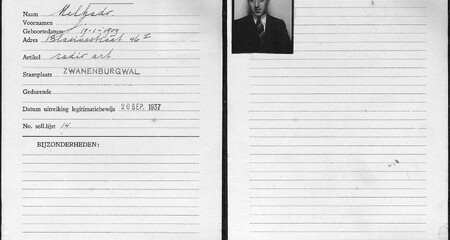 Naam Melkdr.
Voornamen
Geboortedatum 19-1-1909
Adres Blasiusstraat 46 I
Artikel radio art.
Staanplaats ZWANENBURGWAL
Gedurende
Datum uitreiking legitimatiebewijs 20 SEP. 1937
No. soll.lijst 14.
BIJZONDERHEDEN: